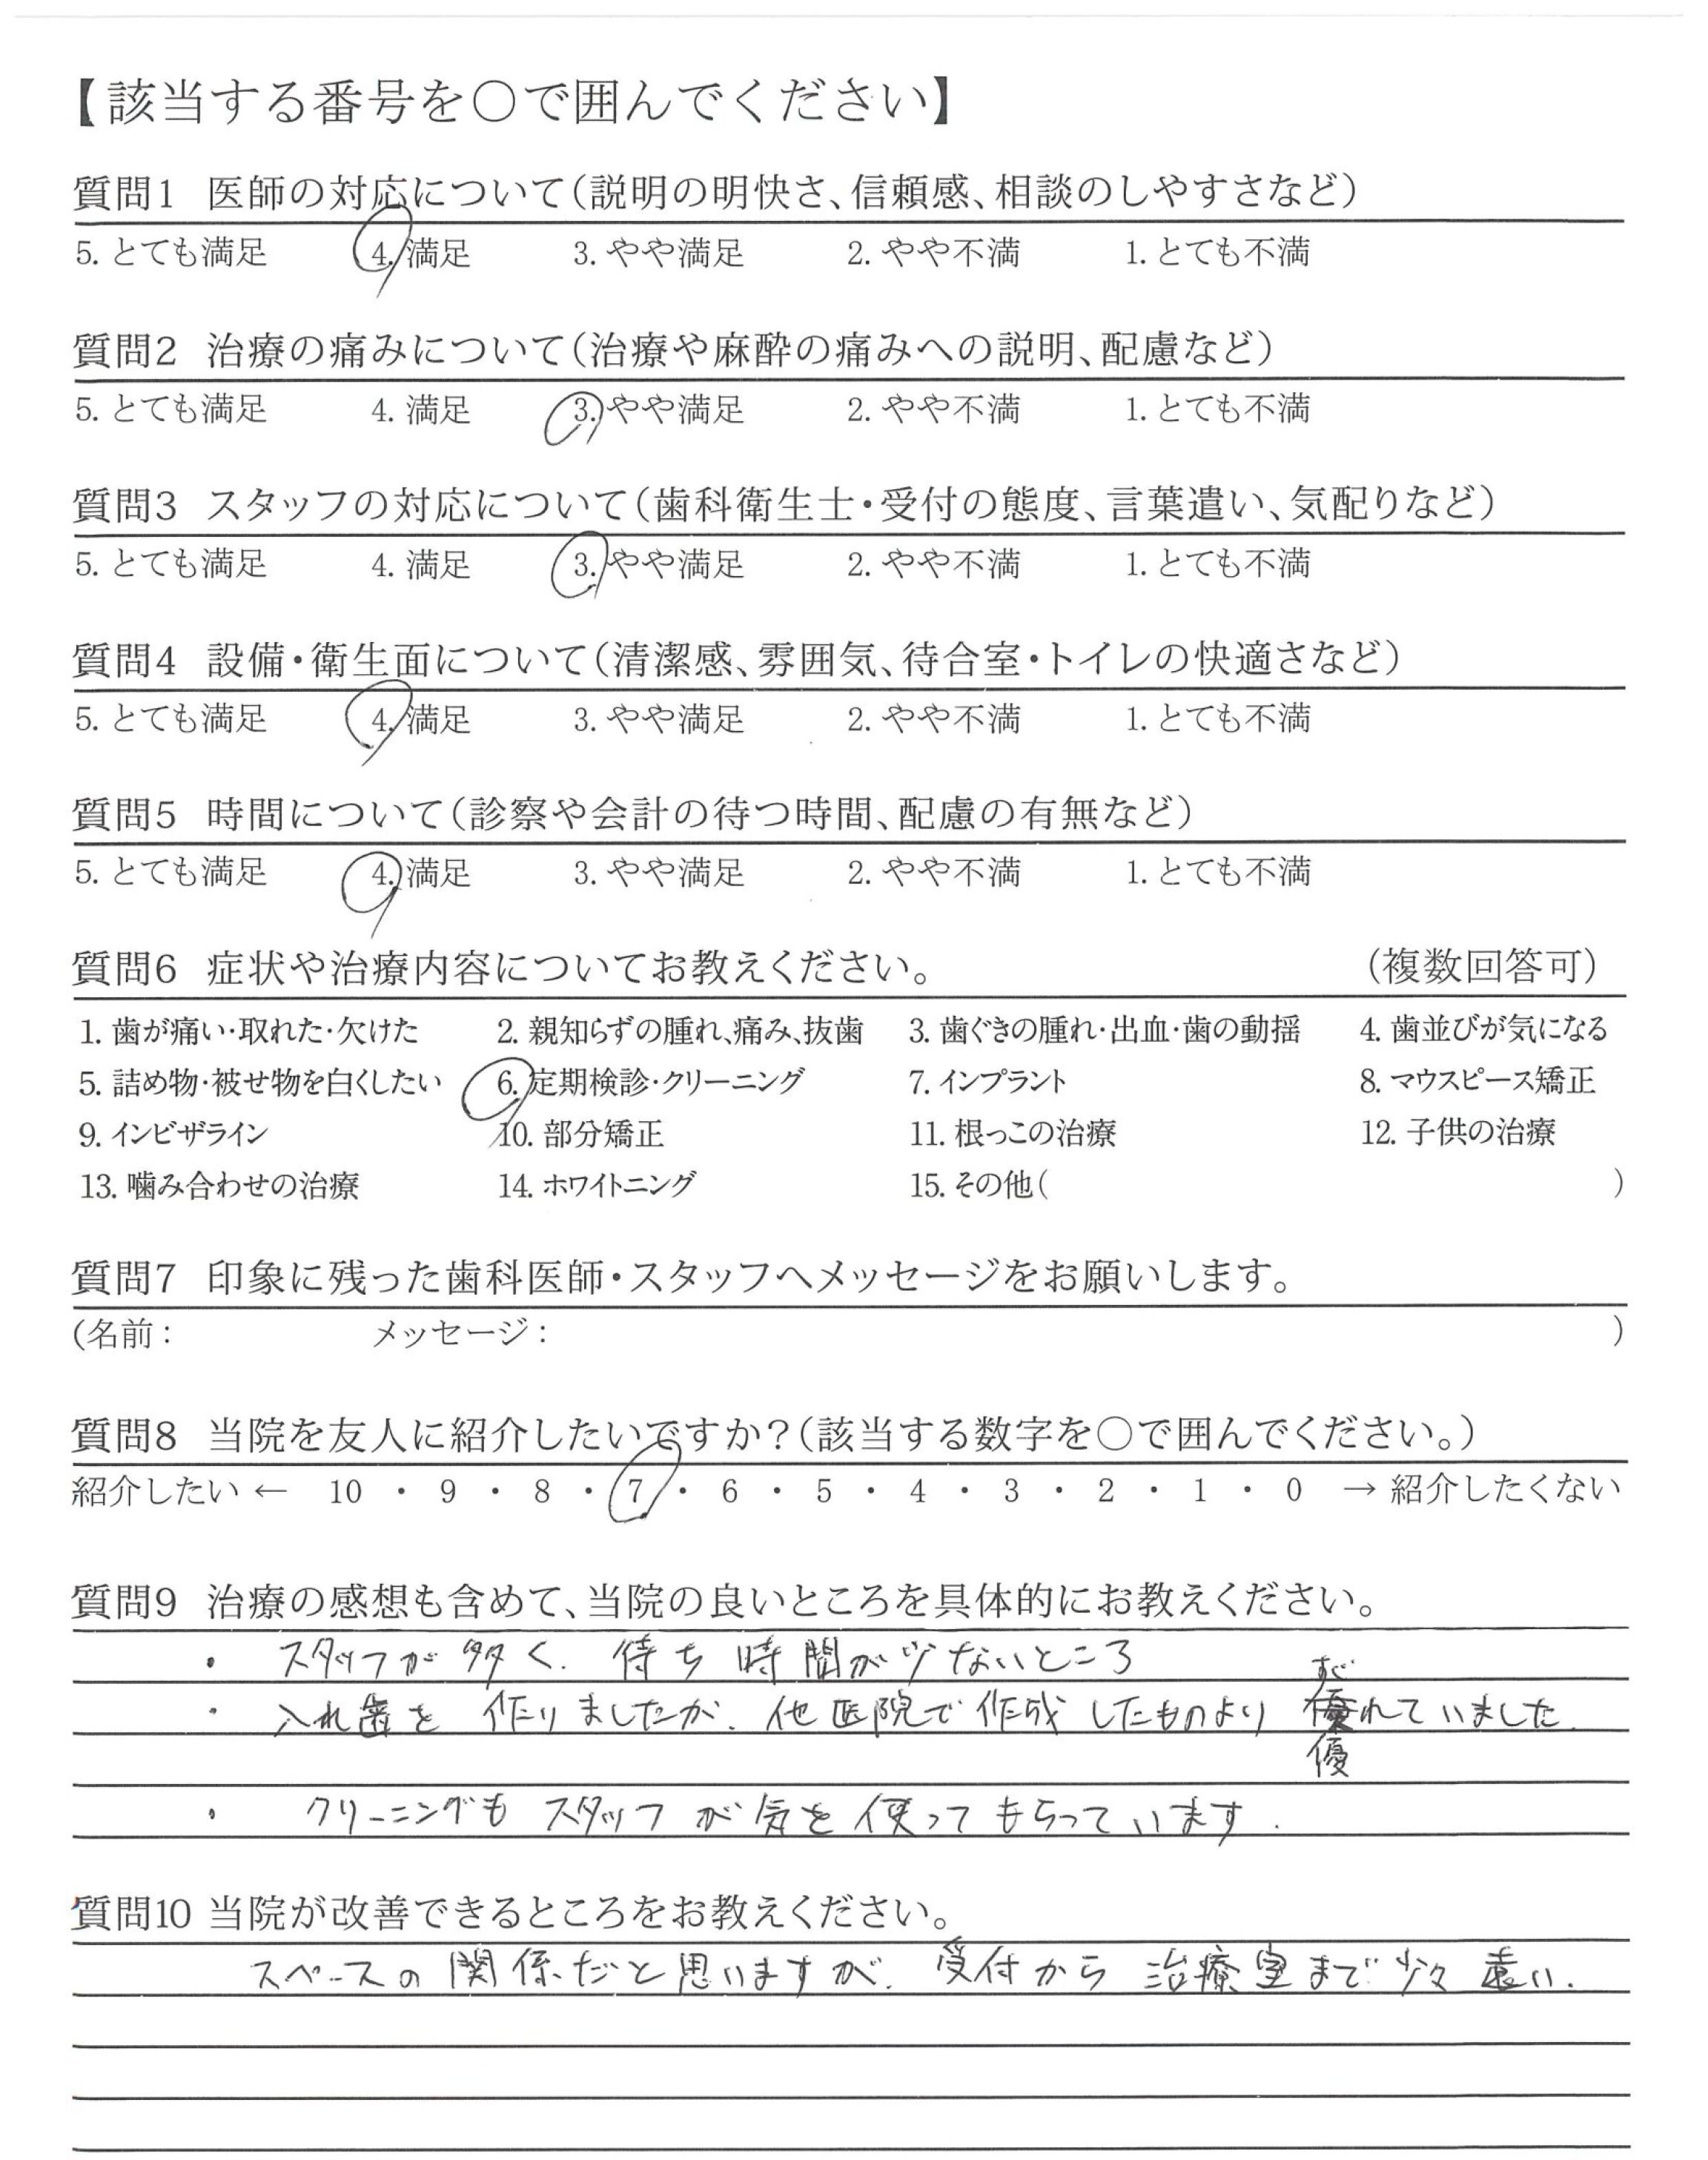 【該当する番号を○で囲んでください】
質問1 医師の対応について(説明の明快さ、信頼感、相談のしやすさなど)
5. とても満足 4. 満足 3. やや満足 2. やや不満 1. とても不満
質問2 治療の痛みについて(治療や麻酔の痛みへの説明、配慮など)
5. とても満足 4. 満足 3. やや満足 2. やや不満 1. とても不満
質問3 スタッフの対応について(歯科衛生士・受付の態度、言葉遣い、気配りなど)
5. とても満足 4. 満足 3. やや満足 2. やや不満 1. とても不満
質問4 設備・衛生面について(清潔感、雰囲気、待合室・トイレの快適さなど)
5. とても満足 4. 満足 3. やや満足 2. やや不満 1. とても不満
質問5 時間について(診察や会計の待つ時間、配慮の有無など)
5. とても満足 4. 満足 3. やや満足 2. やや不満 1. とても不満
質問6 症状や治療内容についてお教えください。 (複数回答可)
1. 歯が痛い・取れた・欠けた 2. 親知らずの腫れ、痛み、抜歯 3. 歯ぐきの腫れ・出血・歯の動揺 4. 歯並びが気になる
5. 詰め物・被せ物を白くしたい 6. 定期検診・クリーニング 7. インプラント 8. マウスピース矯正
9. インビザライン 10. 部分矯正 11. 根っこの治療 12. 子供の治療
13. 噛み合わせの治療 14. ホワイトニング 15. その他( )
質問7 印象に残った歯科医師・スタッフへメッセージをお願いします。
(名前: メッセージ: )
質問8 当院を友人に紹介したいですか?(該当する数字を○で囲んでください。)
紹介したい ← 10 ・ 9 ・ 8 ・ 7 ・ 6 ・ 5 ・ 4 ・ 3 ・ 2 ・ 1 ・ 0 → 紹介したくない
質問9 治療の感想も含めて、当院の良いところを具体的にお教えください。
・ スタッフが多く、待ち時間が少ないところ
すぐ
・ 入れ歯を作りましたが、他医院で作成したものより優れていました.
優
・ クリーニングもスタッフが気を使ってもらっています.
質問10 当院が改善できるところをお教えください。
スペースの関係だと思いますが、受付から治療室まで少々遠い.